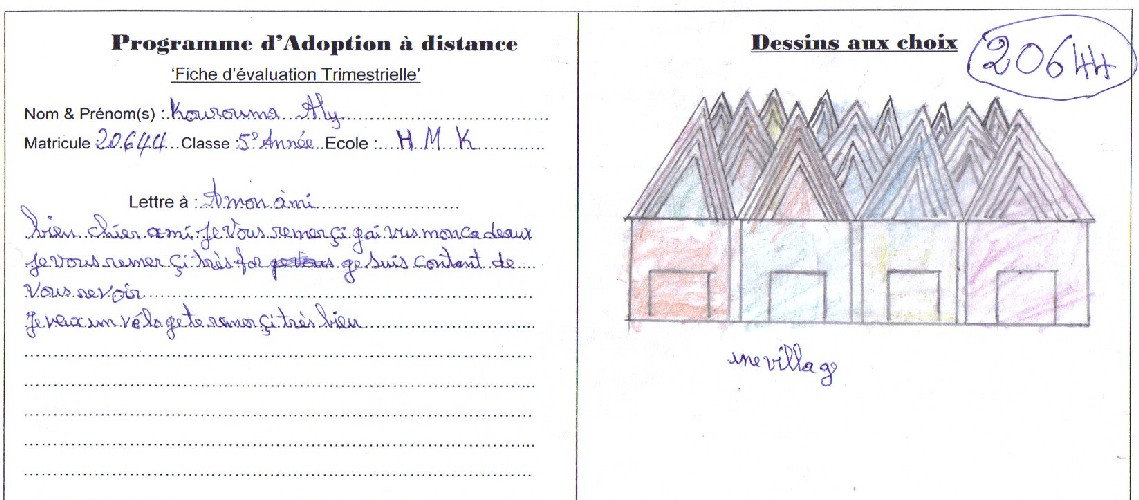 Programme d'Adoption à distance
'Fiche d'évaluation Trimestrielle'
Nom & Prénom(s) : Kourouma Aly
Matricule 20644 Classe : 5e Année Ecole : H M K
Lettre à : A mon ami
bien chier ami. Je vous remerçi gai vus mon cadeaux
Je vous remerçi très for ge suis contant de
vous revoir
Je veux un vélo ge te remerçi très bien
Dessins aux choix
20644
une village